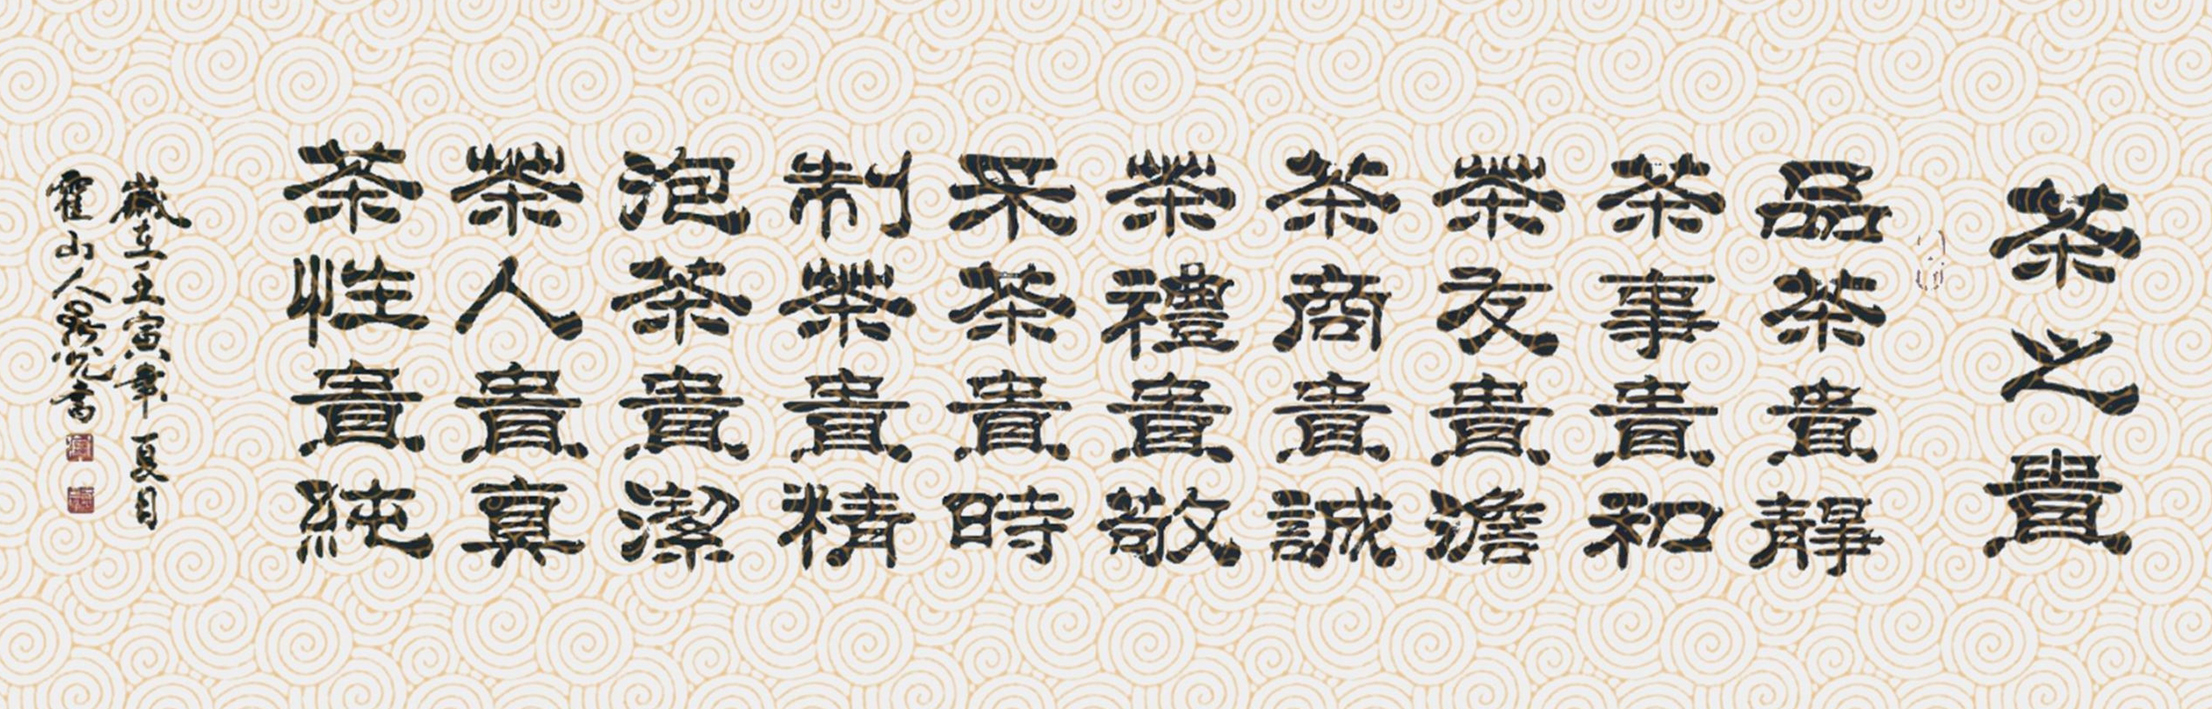 茶之貴
品茶貴靜
茶事貴和
茶友貴澹
茶商貴誠
茶禮貴敬
采茶貴時
制茶貴精
泡茶貴潔
茶人貴真
茶性貴純
歲在壬寅年夏月
霍山人
書